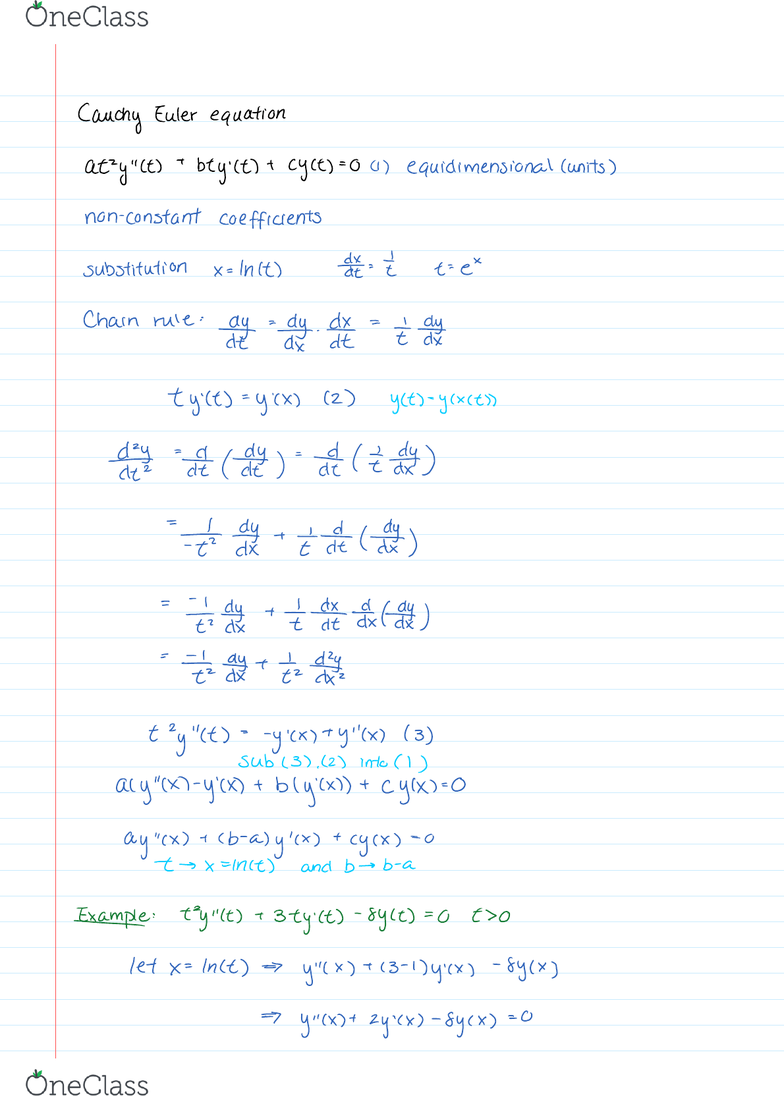 OneClass
Cauchy Euler equation
at²y"(t) + bty'(t) + cy(t) = 0 (1) equidimensional (units)
non-constant coefficients
substitution x = ln(t) dx/dt = 1/t t = eˣ
Chain rule: dy/dt = dy/dx · dx/dt = 1/t dy/dx
ty'(t) = y'(x) (2) y(t) - y(x(t))
d²y/dt² = d/dt (dy/dt) = d/dt (1/t dy/dx)
= 1/-t² dy/dx + 1/t d/dt (dy/dx)
= -1/t² dy/dx + 1/t dx/dt d/dx (dy/dx)
= -1/t² dy/dx + 1/t² d²y/dx²
t²y"(t) = -y'(x) + y"(x) (3)
sub (3), (2) into (1)
a(y"(x) - y'(x) + b(y'(x)) + cy(x) = 0
ay"(x) + (b-a)y'(x) + cy(x) = 0
t → x = ln(t) and b → b-a
Example: t²y"(t) + 3ty'(t) - 8y(t) = 0 t>0
let x = ln(t) ⇒ y"(x) + (3-1)y'(x) - 8y(x)
⇒ y"(x) + 2y'(x) - 8y(x) = 0
OneClass